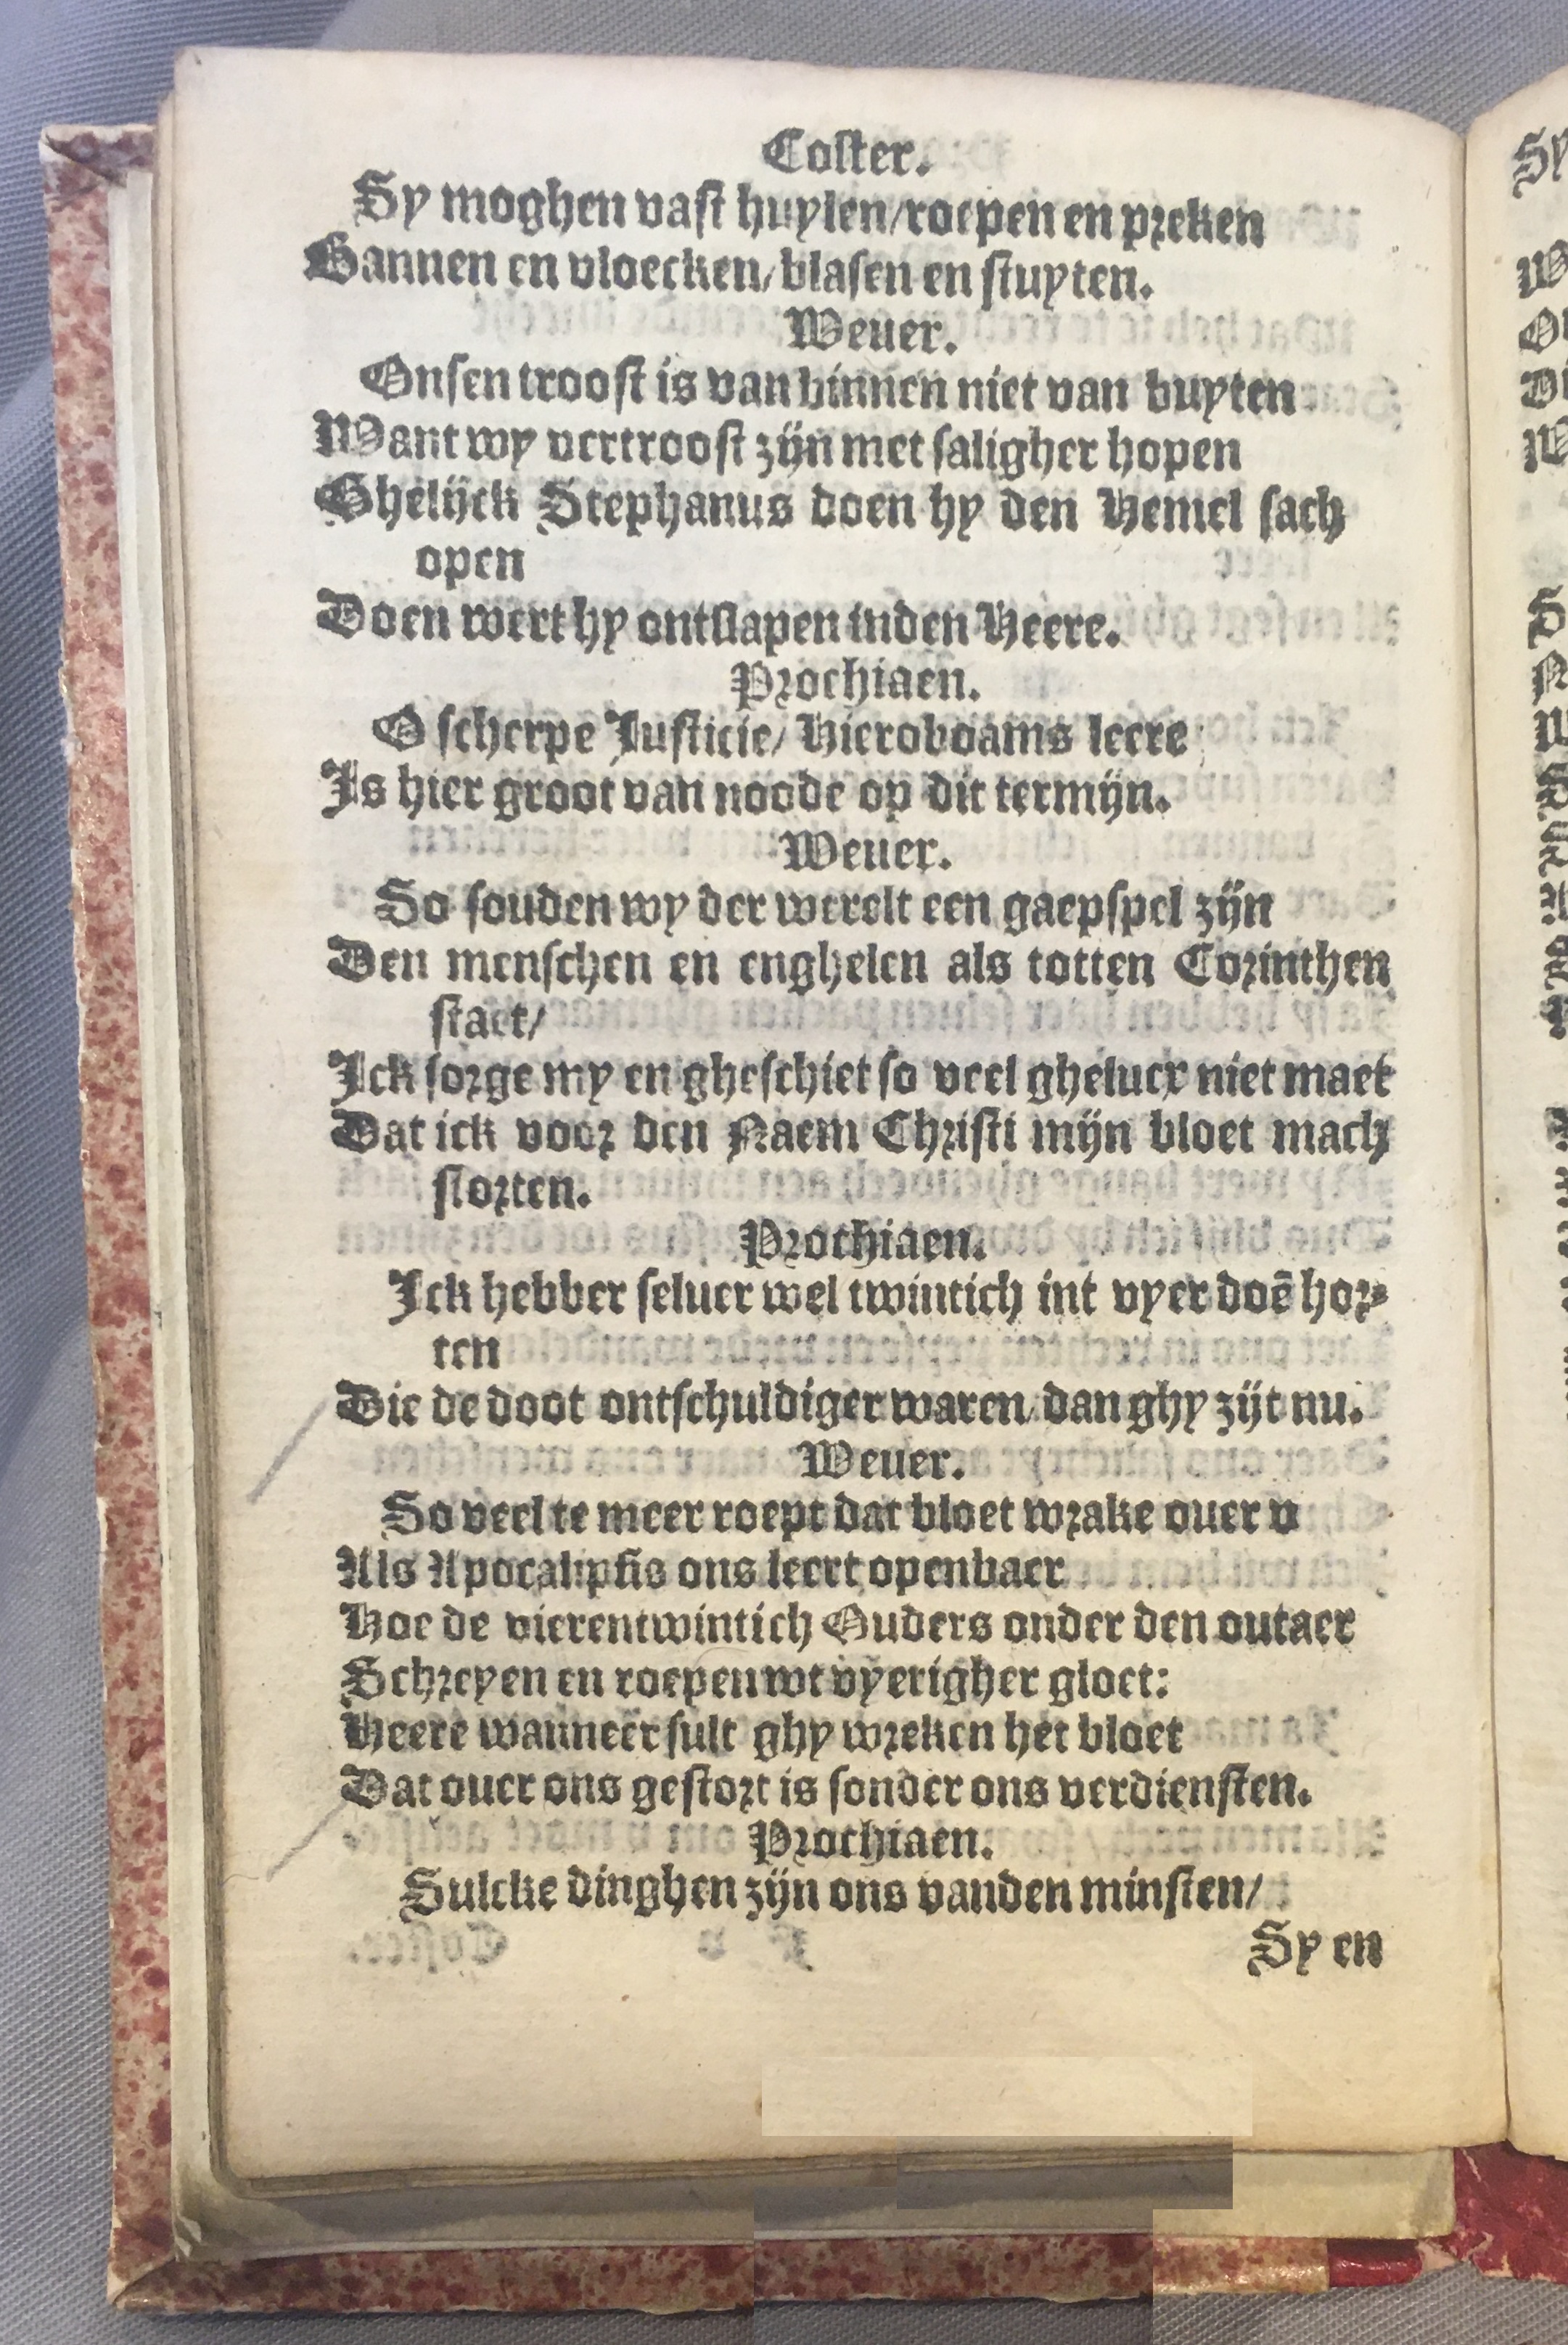 Coster.
Sy moghen vast huylen/roepen en preken
Bannen en vloecken/blasen en stuyten.
Weuer.
Onsen troost is van binnen niet van buyten
Want wy vertroost zijn met saligher hopen
Ghelijck Stephanus doen hy den Hemel sach
open
Doen wert hy ontslapen inden Heere.
Prochiaen.
O scherpe Iusticie/ Hieroboams leere
Is hier groot van noode op dit termijn.
Weuer.
So souden wy der werelt een gaepspel zijn
Den menschen en enghelen als totten Corinthen
staet/
Ick sorge my en gheschiet so veel ghelucx niet maet
Dat ick voor den Naem Christi mijn bloet mach
storten.
Prochiaen.
Ick hebber seluer wel twintich int vyer doē hor⸗
ten
Die de doot ontschuldiger waren/dan ghy zijt nu.
Weuer.
So veel te meer roept dat bloet wrake ouer v
Als Apocalipsis ons leert openbaer
Hoe de vierentwintich Ouders onder den outaer
Schreyen en roepen wt vyerigher gloet:
Heere wanneer sult ghy wreken het bloet
Dat ouer ons gestort is sonder ons verdiensten.
Prochiaen.
Sulcke dinghen zijn ons vanden minsten/
Sy en